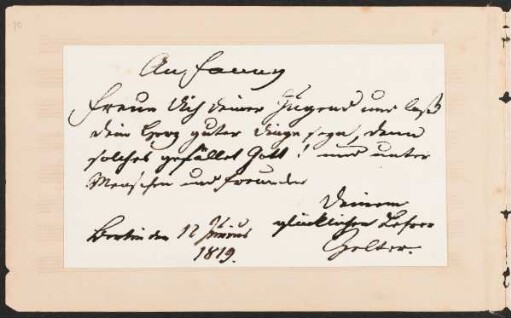 10
An Fanny
Freue dich deiner Jugend und laß
dein Herz guter Dinge seyn, denn
solches gefället Gott! und unter
Menschen und Freunden
Deinem
glücklichen Lehrer
Berlin den 12 Junius
Zelter.
1819.